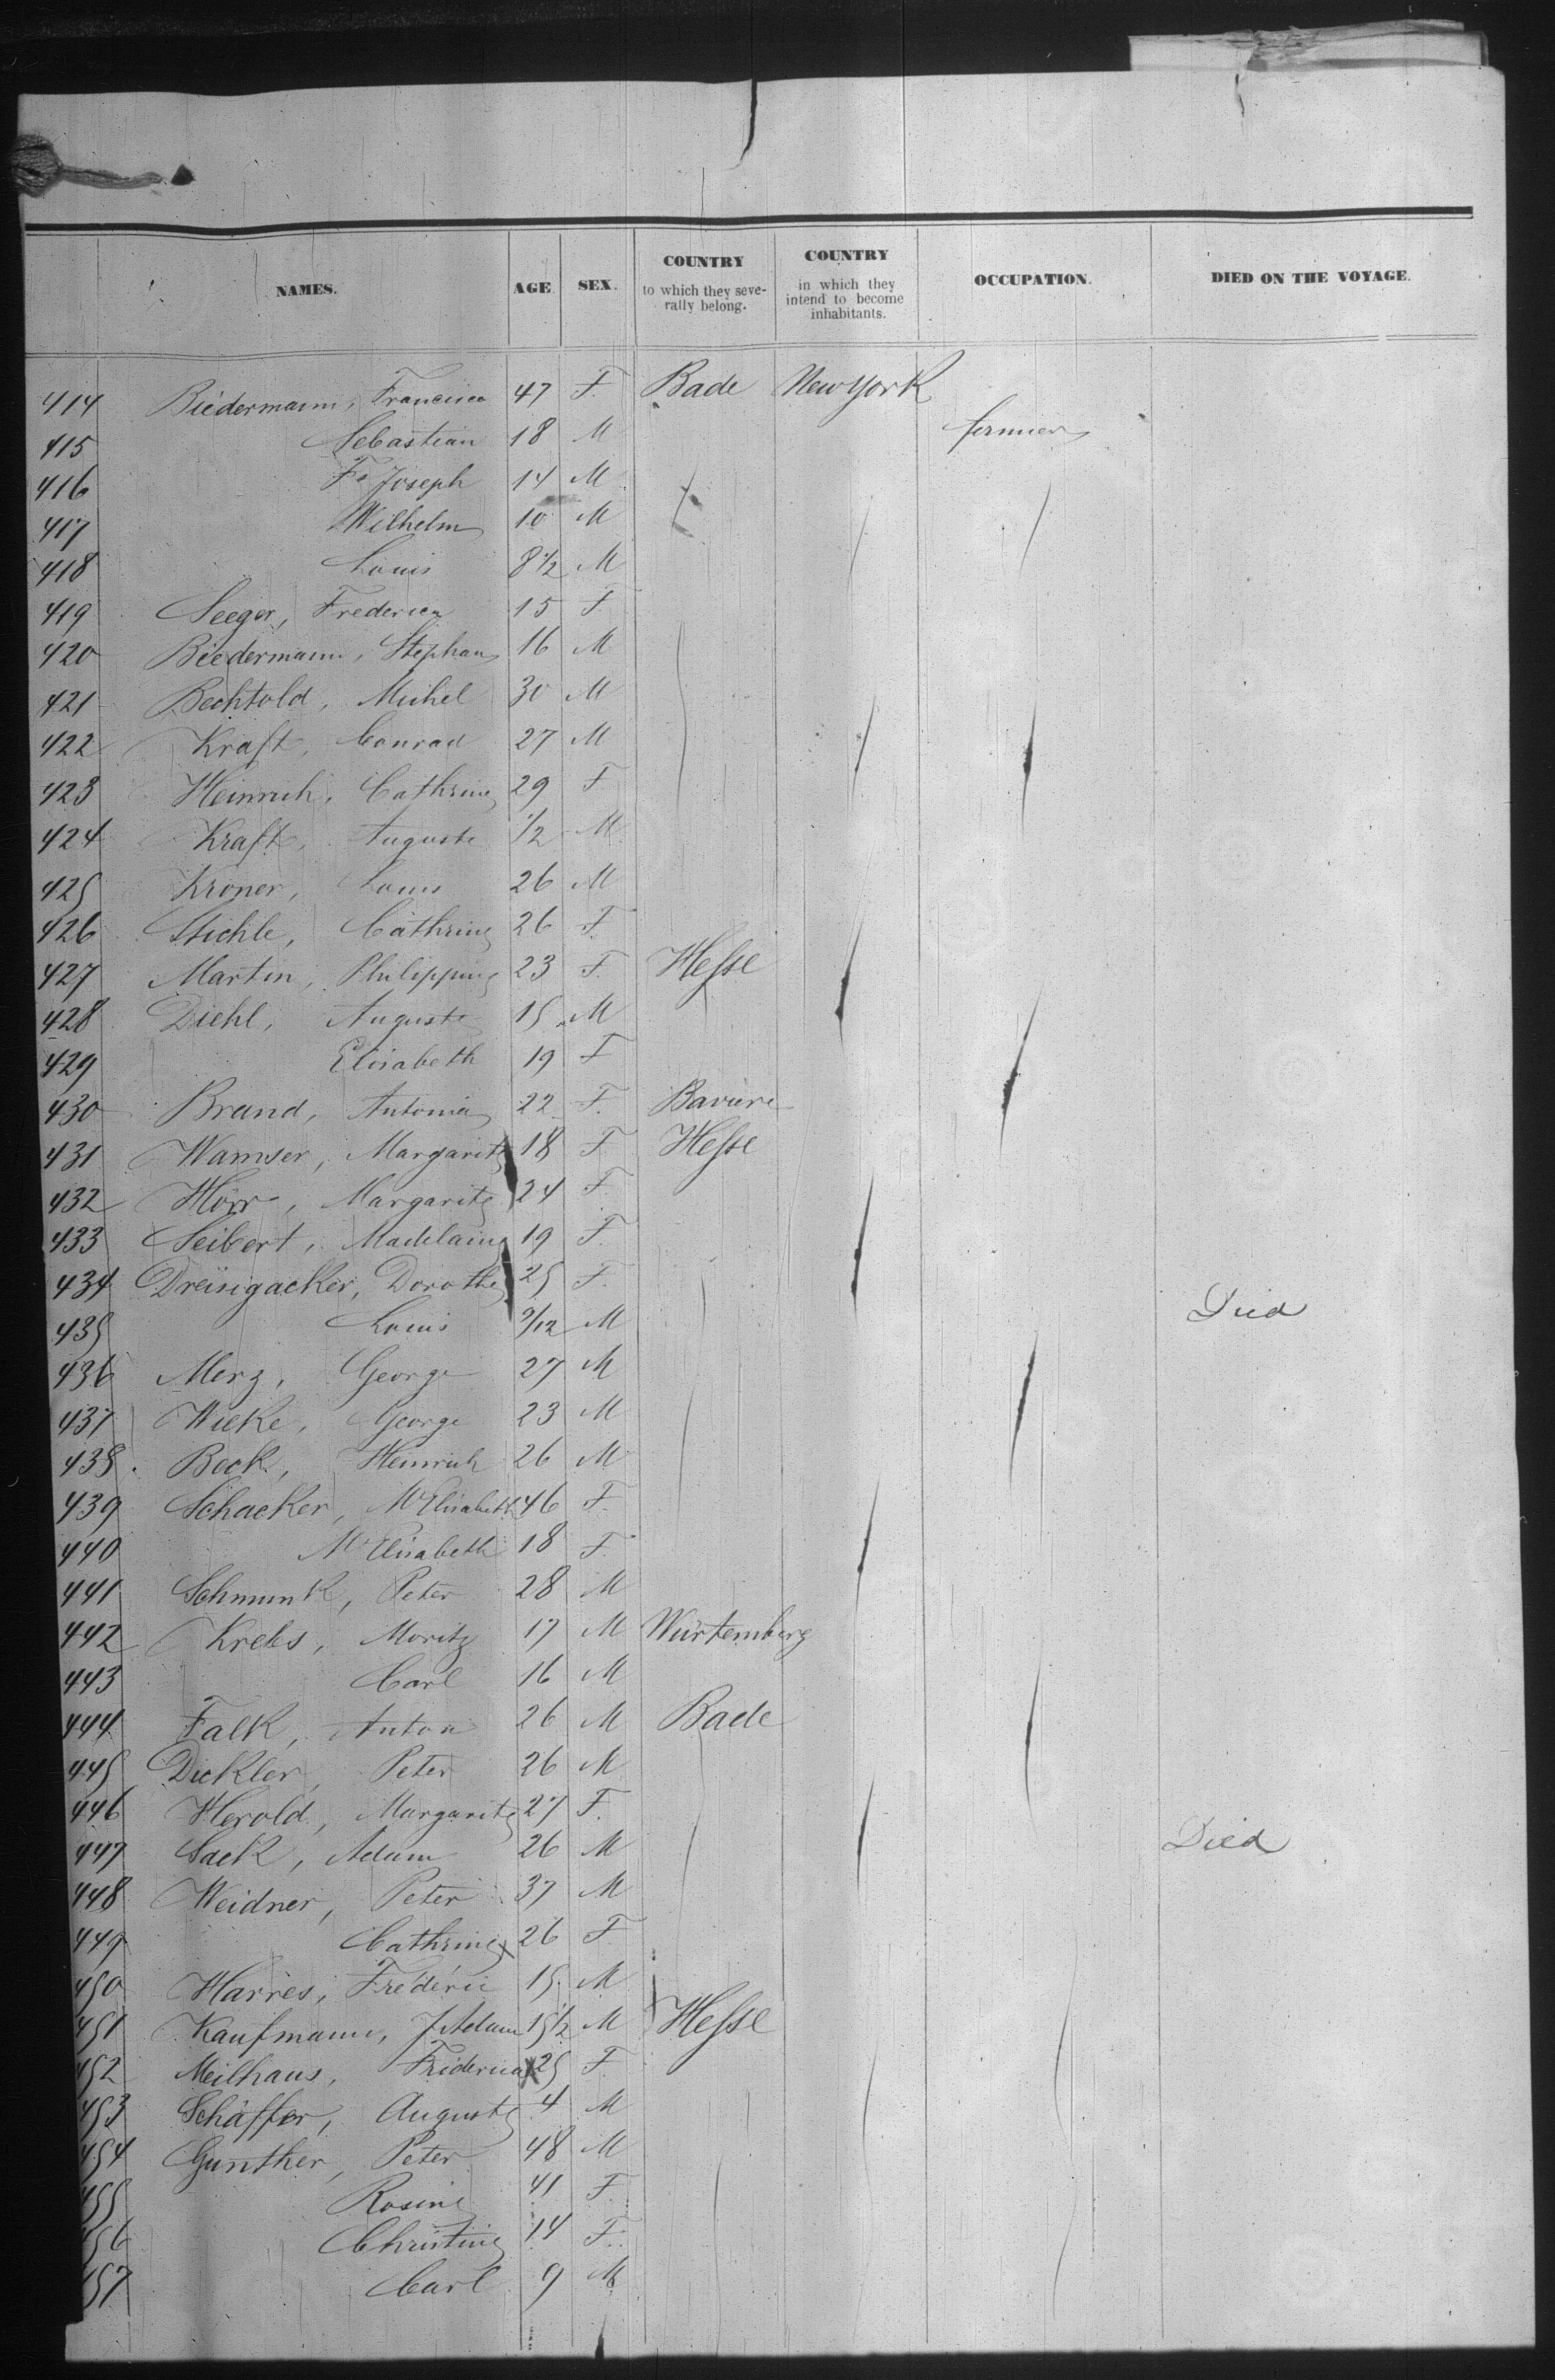 NAMES. AGE. SEX. COUNTRY to which they severally belong. COUNTRY in which they intend to become inhabitants. OCCUPATION. DIED ON THE VOYAGE.
414 Biedermann, Francisca 47 F. Bade New York
415 Sebastian 18 M fermier
416 Fs Joseph 14 M
417 Wilhelm 10 M
418 Louis 8 1/2 M
419 Seeger, Frederica 15 F
420 Biedermann, Stephan 16 M
421 Bechtold, Michel 30 M
422 Kraft, Conrad 27 M
423 Heinrich, Cathrine 29 F
424 Kraft, Auguste 1/2 M
425 Kröner, Louis 26 M
426 Stichle, Cathrine 26 F.
427 Martin, Philippine 23 F. Hesse
428 Diehl, Auguste 15 M
429 Elisabeth 19 F
430 Brand, Antonia 22 F. Baviere
431 Wamser, Margarite 18 F Hesse
432 Hörr, Margarite 24 F
433 Seibert, Madelaine 19 F.
434 Dreisigacker, Dorothe 25 F.
435 Louis 9/12 M Died
436 Merz, George 27 M
437 Wicke, George 23 M
438 Beck, Heinrich 26 M
439 Schacker, M Elisabeth 46 F.
440 M Elisabeth 18 F.
441 Schmunk, Peter 28 M
442 Krebs, Moritz 17 M Würtemberg
443 Carl 16 M
444 Falk, Anton 26 M Bade
445 Dickler, Peter 26 M
446 Herold, Margarite 27 F.
447 Sack, Adam 26 M Died
448 Weidner, Peter 37 M
449 Cathrine 26 F
450 Harres, Fréderic 15 M
451 Kaufmann, J Adam 15 1/2 M Hesse
452 Meilhaus, Friderica 25 F
453 Schäffer, Auguste 4 M
454 Gunther, Peter 48 M
455 Rosine 41 F.
456 Christine 14 F.
457 Carl 9 M